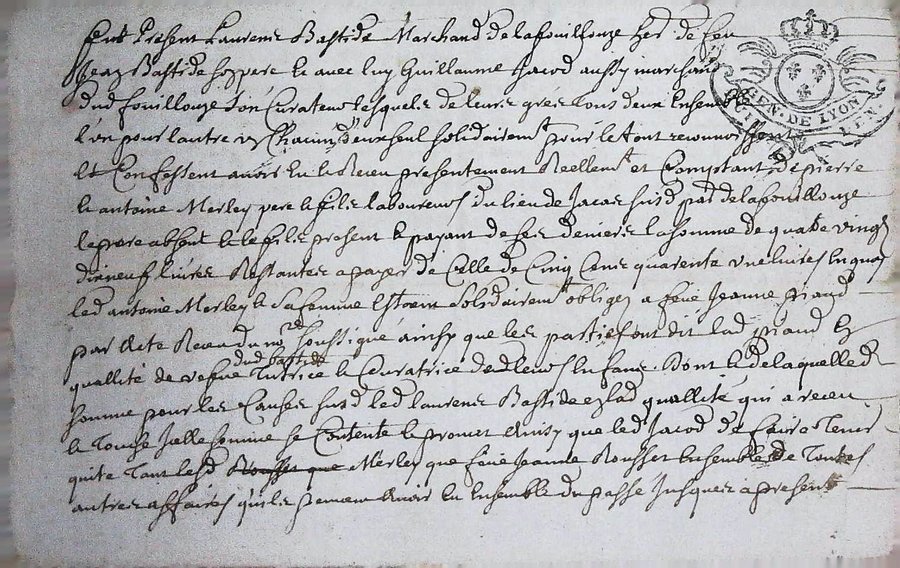 furt present Laurens Bastide Marchand de lafouillouze her de feu
Jean Bastide son pere et avec luy Guillaume Jacod aussy marchand
dud fouillouze son Curateur lesquels de leurs grés tous deux Ensemble
l'un pour lautre un Chacun d'eux seul solidairemt pour le tout reconnoissent
et Confessent avoir Eu et Receu presentement Reellemt et Comptant de pierre
et antoine Merley pere et fils laboureurs du lieu de susd par de lafouillouze
le pere absent et le fils present et payant de ses deniers la somme de quatre vingt
dixneuf livres Restantes a payer de Celle de Cinq Cens quarente une livres En quoy
led antoine Merley et sa femme Estoient solidairemt obligez a feüe Jeanne
par acte Receu du no red ainsy que les parties ont dit lad En
quallité de vefve dud bastide Tutrice et Curatrice de leurs Enfans. Dont et de laquelle d
somme pour les Causes susd led laurens Bastide esd quallité qui a receu
et Touché Icelle somme se Contente et promet Ainsy que led Jacod de faire Tenir
quite Tant lesd Merley que feüe Jeanne Rousset Ensemble de Toutes
autres affaires quils peuvent Avoir Eu Ensemble du passé Jusques a present
GEN. DE LYON